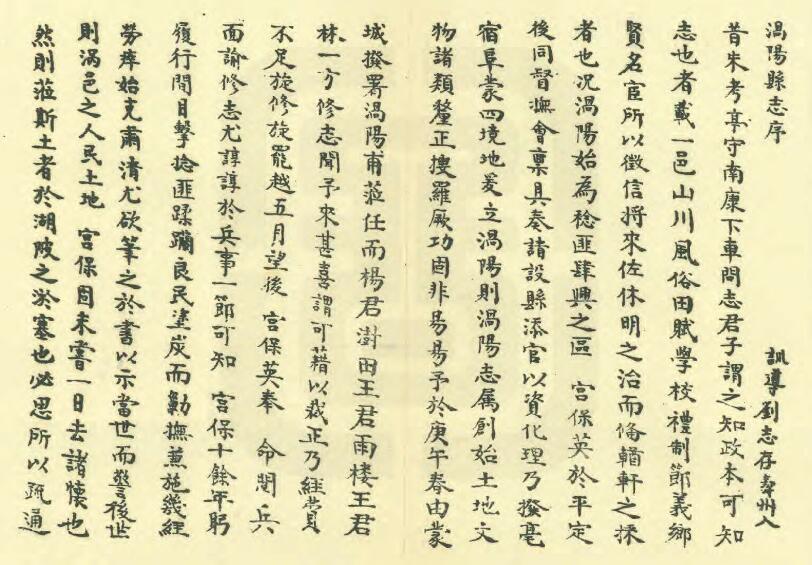 渦陽縣志序
訓導劉志存壽州人
昔朱考亭守南康下車問志君子謂之知政本可知
志也者載一邑山川風俗田賦學校禮制節義鄉
賢名宦所以徵信將來佐休明之治而備輶軒之採
者也況渦陽始為捻匪肆興之區 宮保英於平定
後同督撫會稟具奏請設縣添官以資化理乃撥亳
宿阜蒙四境地爰立渦陽則渦陽志属創始土地文
物諸類釐正搜羅厥功固非易易予於庚午春由蒙
城撥署渦陽甫蒞任而楊君澍田王君雨樓王君
林一方修志聞予來甚喜謂可藉以裁正乃經費
不足旋修旋罷越五月望後 宮保英奉 命閱兵
面諭修志尤諄諄於兵事一節可知 宮保十餘年躬
履行間目擊捻匪蹂躪良民塗炭而勦撫兼施幾經
勞瘁始克肅清尤欲筆之於書以示當世而警後世
則渦邑之人民土地 宮保固未嘗一日去諸懷也
然則蒞斯土者於湖陂之淤塞也必思所以疏通